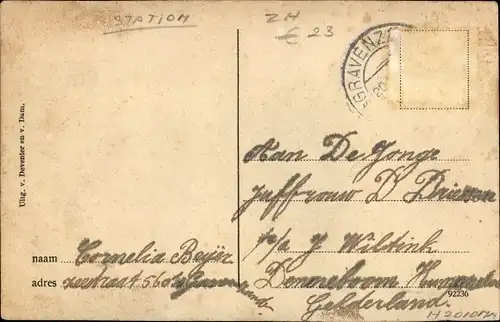 STATION
ZH
€ 23
'SGRAVENZ
Uitg. v. Deventer en v. Dam.
Aan De Jonge
Juffrouw D Driesen
p/a J Wiltink
Gelderland.
naam Cornelia Beijer
adres
92236